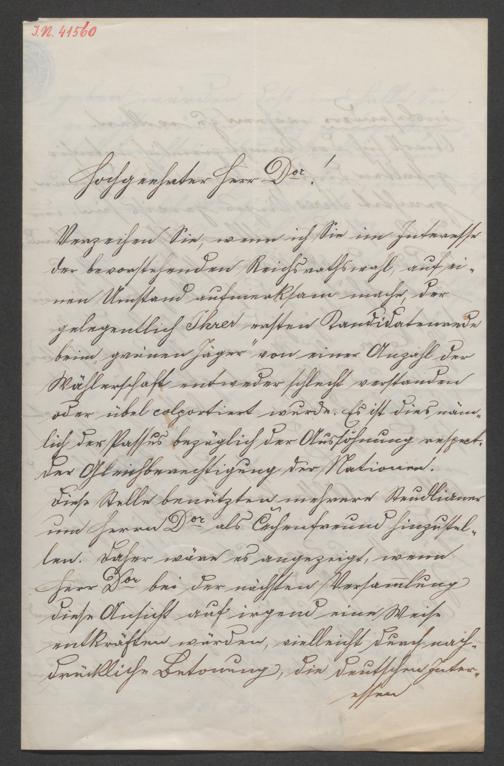 I.N. 41560
Hochgeehrter Herr Dor!
Verzeihen Sie, wenn ich Sie im Interesse
der bevorstehenden Reichsrathswahl, auf ei-
nen Umstand aufmerksam mache, der
gelegentlich Ihrer ersten Kandidatenrede
beim „grünen Jäger“ von einer Anzahl der
Wählerschaft entweder schlecht verstanden
oder übel colportiert wurde. Es ist dies näm-
lich der Passus bezüglich der Aussöhnung respect.
der Gleichberechtigung der Nationen.
Diese Stelle benützten mehrere Steudlianer
um Herrn Dor als Čechenfreund hinzustel-
len. Daher wäre es angezeigt, wenn
Herr Dor bei der nächsten Versammlung
diese Ansicht auf irgend eine Weise
entkräften würden, vielleicht durch nach-
drückliche Betonung, die deutschen Inter-
essen